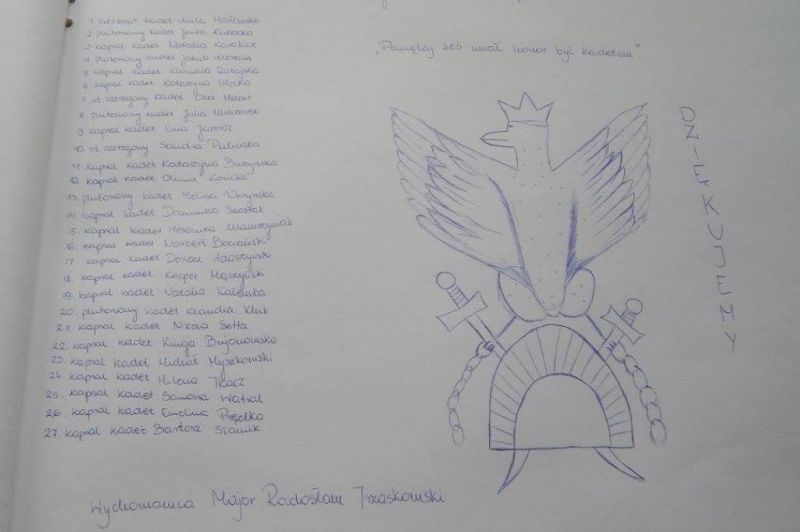 1. sierżant kadet Anita
2. plutonowy kadet
3. kapral kadet Natalia
4. plutonowy kadet Jakub
5. kapral kadet Klaudia
6. kapral kadet Katarzyna
7. st. szeregowy kadet Ewa Mazur
8. plutonowy kadet Julia
9. kapral kadet Ewa
10. st. szeregowy Sandra Pulińska
11. kapral kadet Katarzyna Buczyńska
12. kapral kadet Oliwia Konicka
13. plutonowy kadet Melisa Woryńska
14. kapral kadet Dominika Szostak
15. kapral kadet Weronika
16. kapral kadet Norbert Bociański
17. kapral kadet Dorian Adaszyński
18. kapral kadet Kacper Mączyński
19. kapral kadet Natalia Kalemba
20. plutonowy kadet Klaudia Kluk
21. kapral kadet Nikola Setta
22. kapral kadet Kinga Bujanowska
23. kapral kadet Michał Myszkowski
24. kapral kadet Milena Tkacz
25. kapral kadet Samona Watral
26. kapral kadet Emelina Prządka
27. kapral kadet Bartosz Sławik
Wychowawca Major Radosław Trzaskowski
„Pamiętaj żeś miał honor być kadetem”
DZIĘKUJEMY